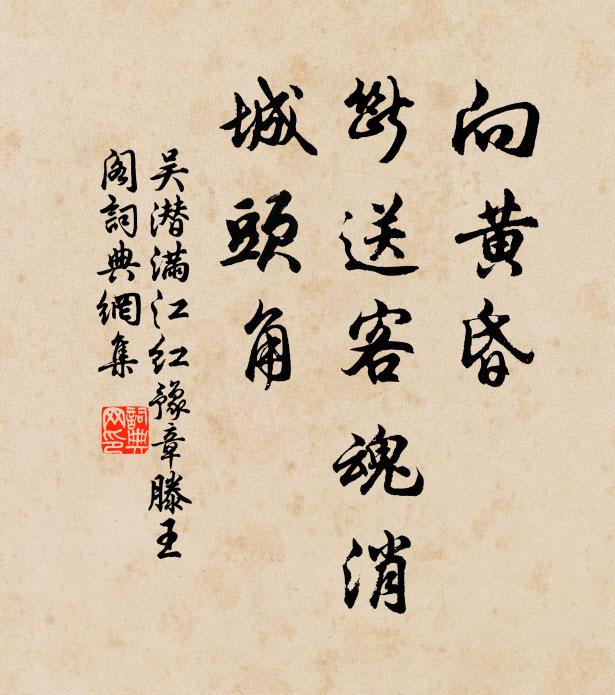 向黄昏
断送客魂消
城頭角
吴潜满江红豫章滕王
阁詞典網集
詞典
网印